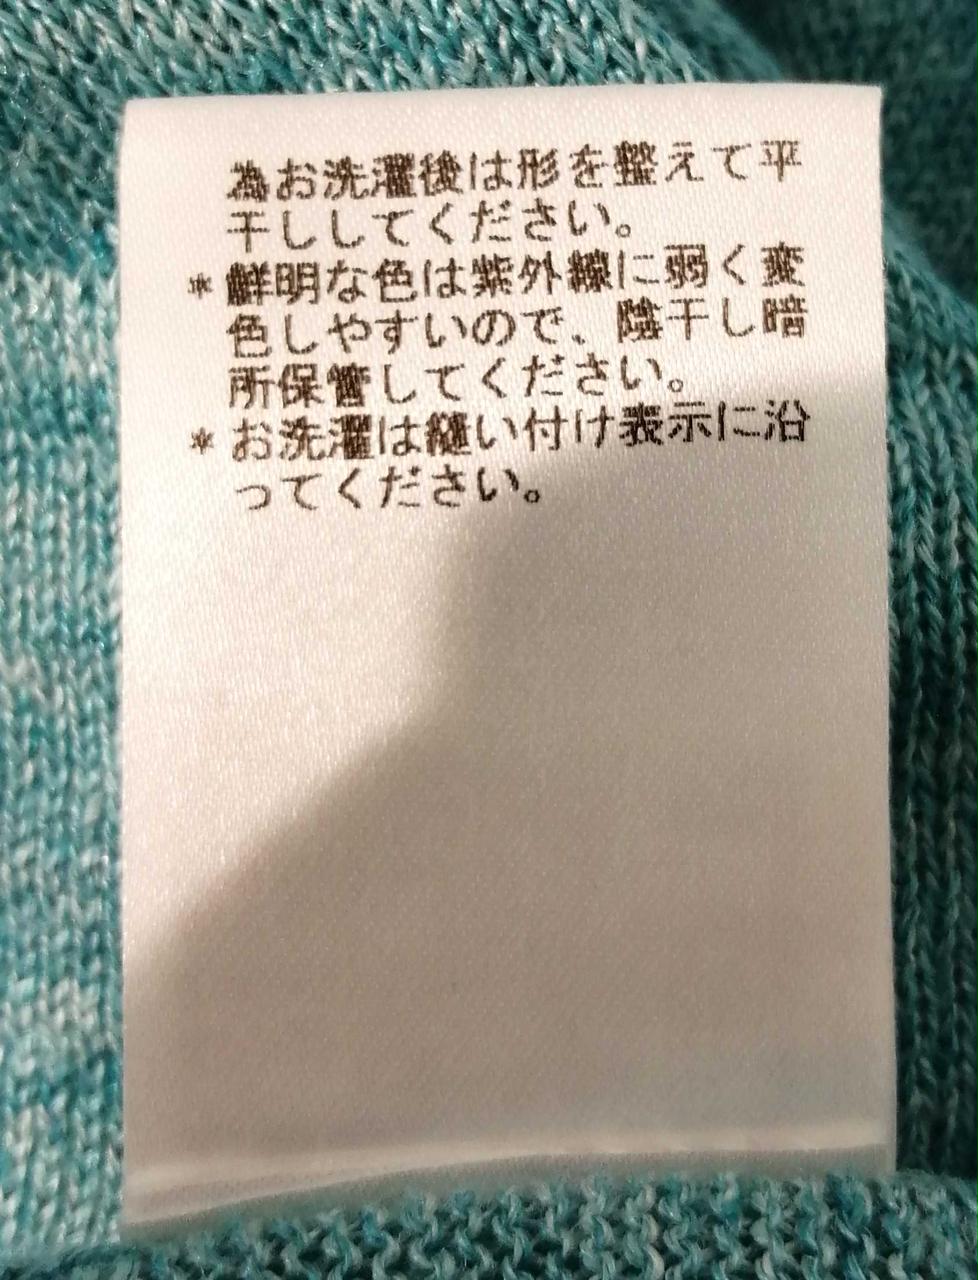 為お洗濯後は形を整えて平
干ししてください。
*鮮明な色は紫外線に弱く変
色しやすいので、陰干し暗
所保管してください。
*お洗濯は縫い付け表示に沿
ってください。